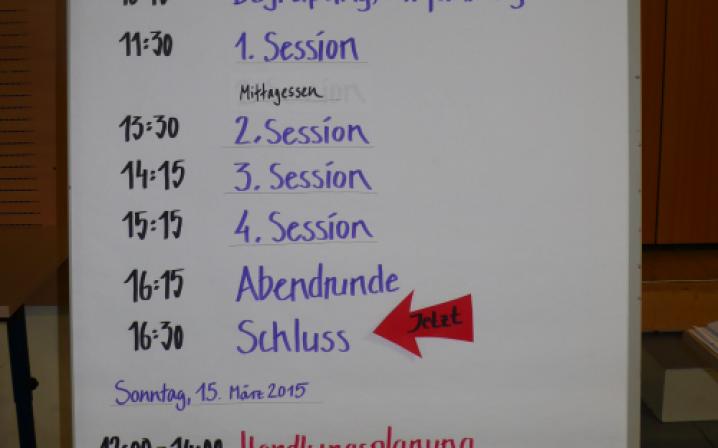 11:30 1. Session
Mittagessen
13:30 2. Session
14:15 3. Session
15:15 4. Session
16:15 Abendrunde
16:30 Schluss Jetzt
Sonntag, 15. März 2015
Handlungsplanung